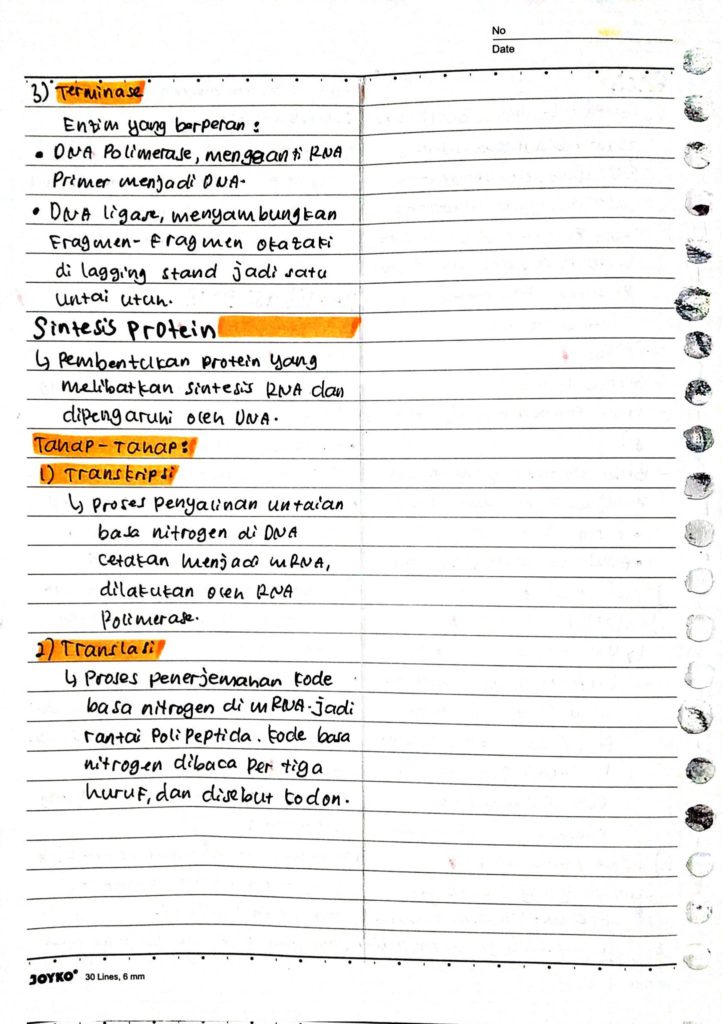 No
Date
3) Terminase
Enzim yang berperan :
• DNA Polimerase, mengganti RNA
Primer menjadi DNA.
• DNA ligase, menyambungkan
Fragmen-Fragmen okazaki
di lagging stand jadi satu
untai utuh.
Sintesis protein
↳ Pembentukan protein yang
melibatkan sintesis RNA dan
dipengaruhi oleh DNA.
Tahap-Tahap:
1) Transkripsi
↳ Proses penyalinan untaian
basa nitrogen di DNA
cetakan menjadi mRNA,
dilakukan oleh RNA
Polimerase.
2) Translasi
↳ Proses penerjemahan kode
basa nitrogen di mRNA jadi
rantai polipeptida. kode basa
nitrogen dibaca per tiga
huruf, dan disebut kodon.
JOYKO 30 Lines, 6 mm